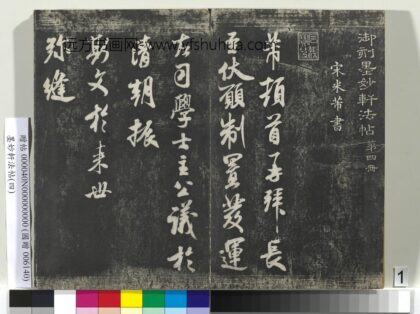 御刻墨妙軒法帖 第四冊
宋米芾書
芾頓首再拜長
至伏願制置發運
左司學士主公議於
清朝振
斯文於来世
弥縫
远方书画网 www.yfshuhua.com
贈帖 000040N000000000 (國贈 006140)
墨妙軒法帖(四)
1